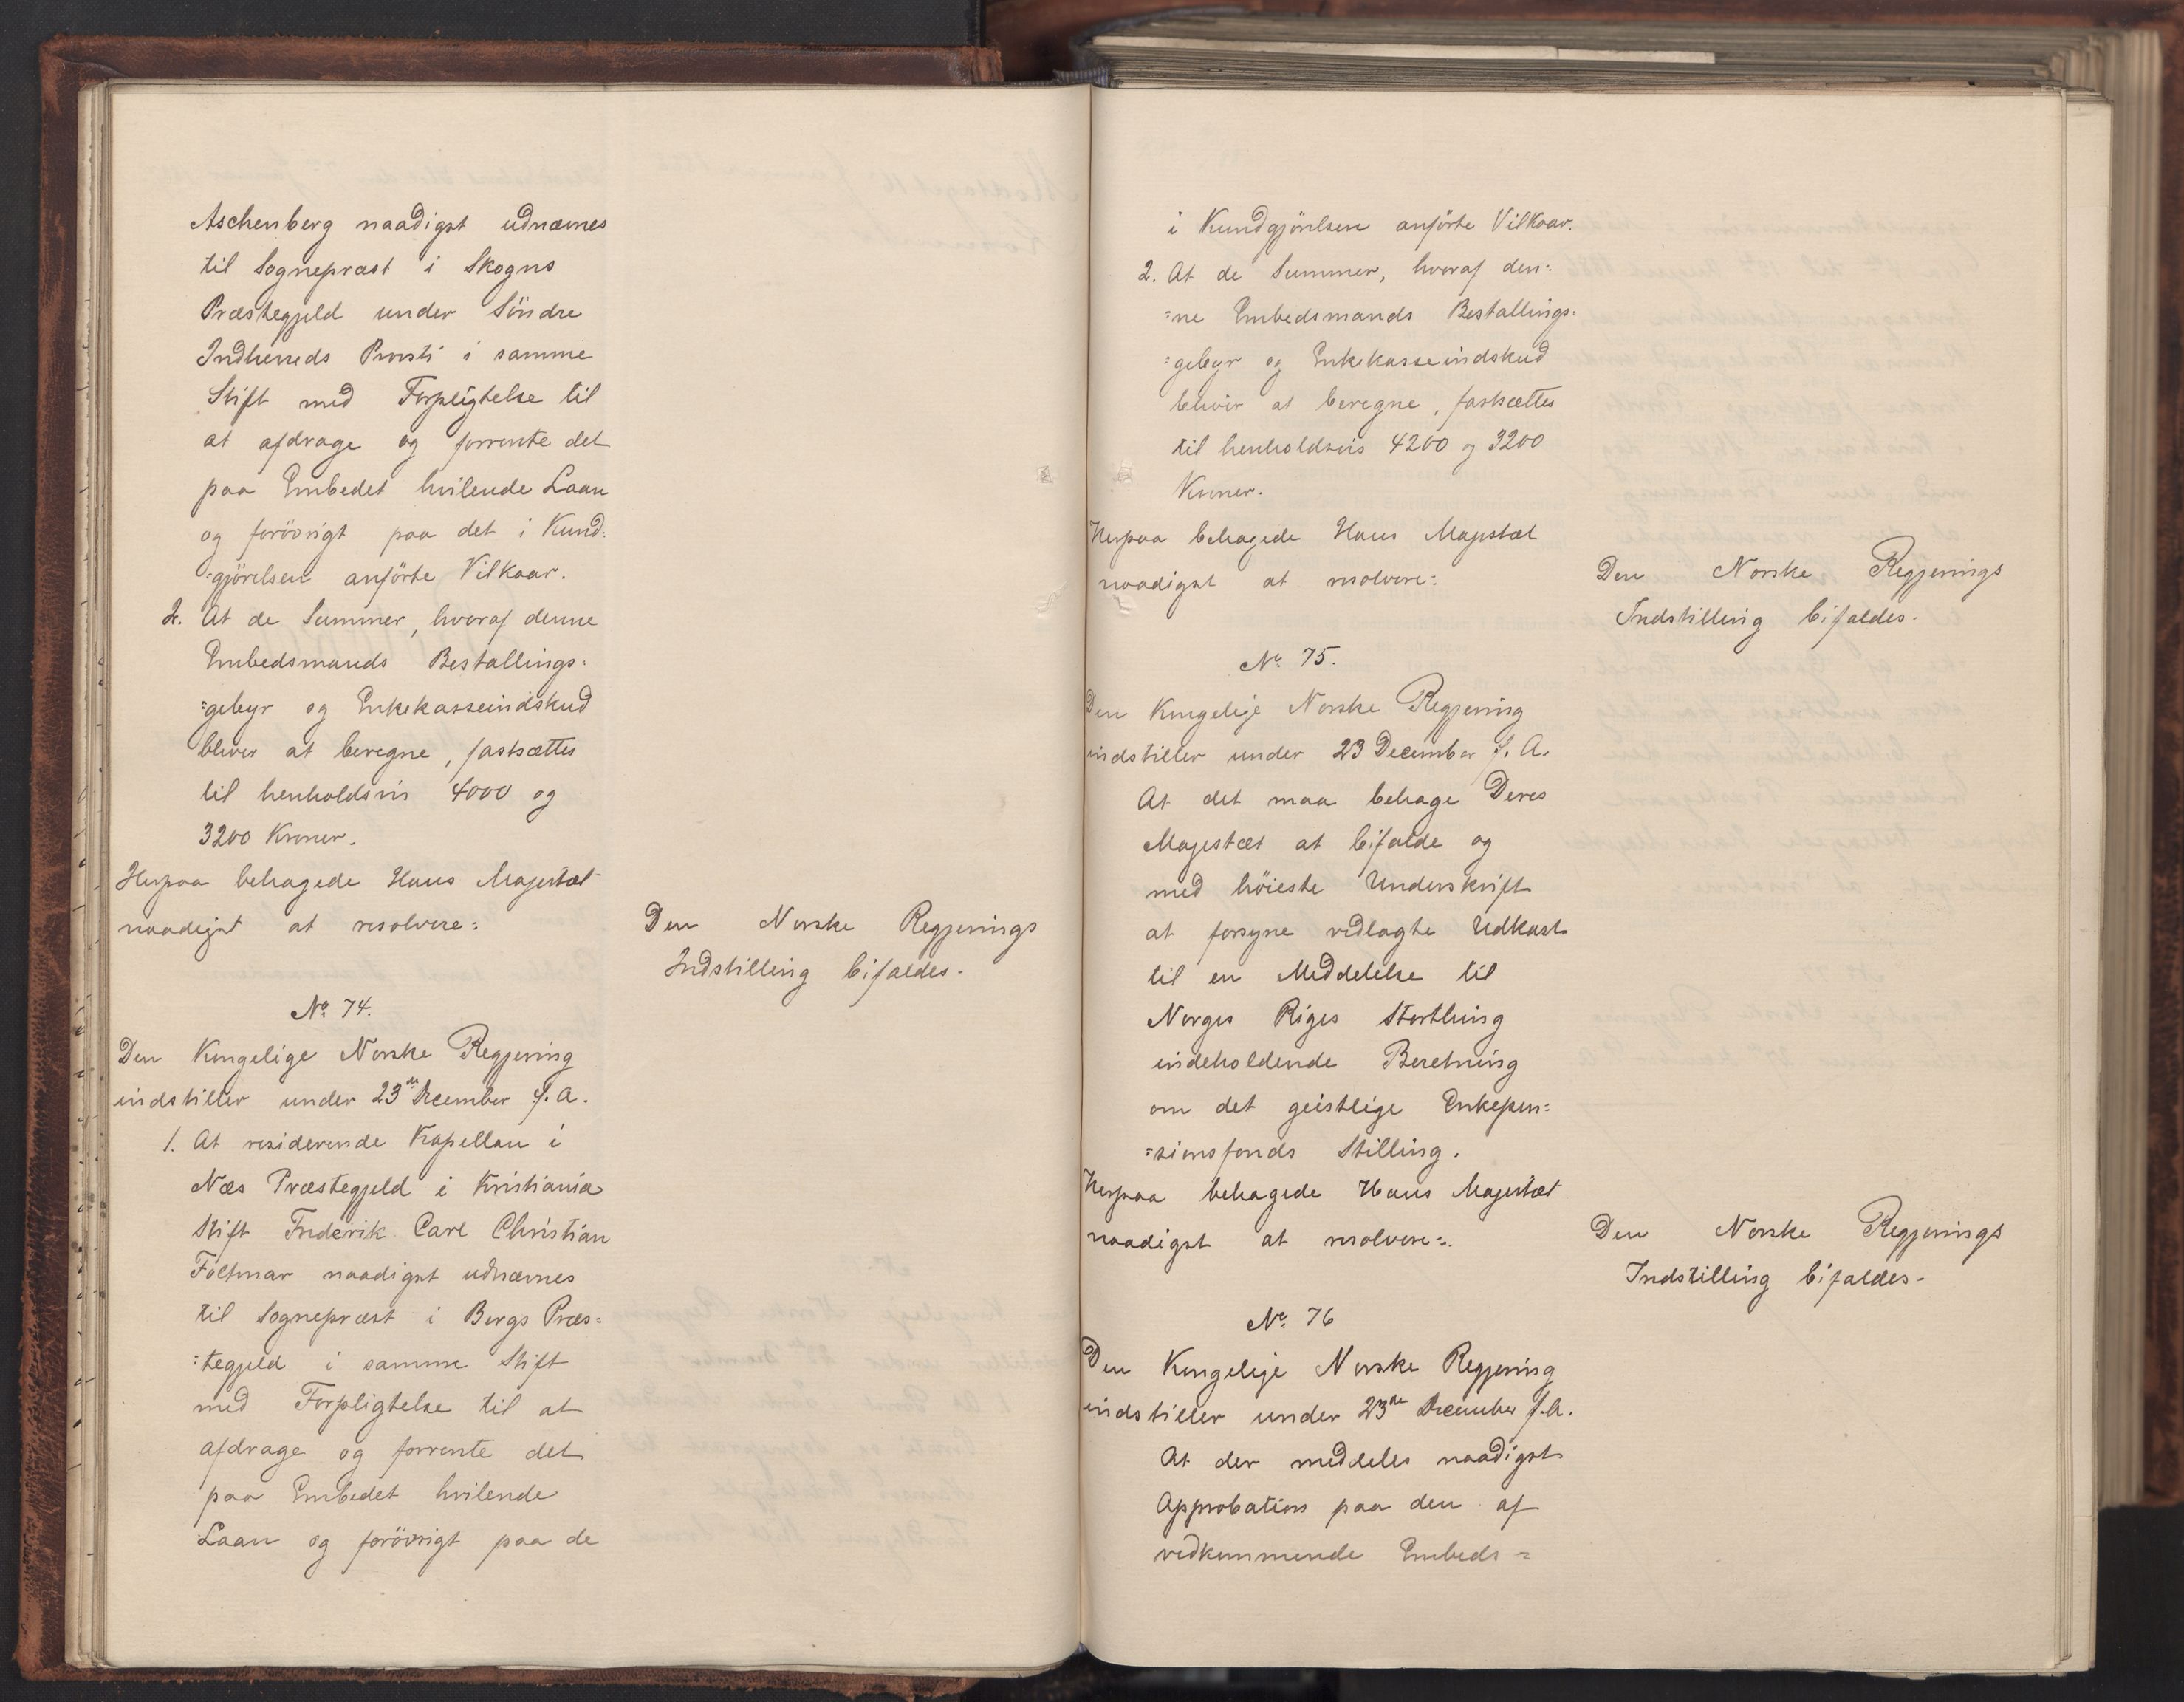 Aschenberg naadigst udnævnes
til Sognepræst i Skogns
Præstegjeld under Søndre
Indherreds Provsti i samme
Stift med Forpligtelse til
at afdrage og forrente det
paa Embedet hvilende Laan
og forövrigt paa det i Kund-
=gjörelsen anförte Vilkaar.
2. At de Summer, hvoraf denne
Embedsmands Bestallings-
=gebyr og Enkekasseindskud
bliver at beregne, fastsættes
til henholdsvis 4000 og
3200 Kroner.
Herpaa behagede Hans Majestæt
naadigst at resolvere:
Den Norske Regjerings
Indstilling bifaldes.
No. 74.
Den Kongelige Norske Regjering
indstiller under 23de December f. A.
1. At residerende Kapellan i
Næs Præstegjeld i Kristiania
Stift Frederik Carl Christian
Foltmar naadigst udnævnes
til Sognepræst i Bergs Præs=
=tegjeld i samme Stift
med Forpligtelse til at
afdrage og forrente det
paa Embedet hvilende
Laan og forövrigt paa de
i Kundgjörelsen anförte Vilkaar.
2. At de Summer, hvoraf den=
=ne Embedsmands Bestallings-
=gebyr og Enkekasseindskud
bliver at beregne, fastsættes
til henholdsvis 4200 og 3200
Kroner.
Herpaa behagede Hans Majestæt
naadigst at resolvere:
Den Norske Regjerings
Indstilling bifaldes.
No. 75.
Den Kongelige Norske Regjering
indstiller under 23 December f. A.
At det maa behage Deres
Majestæt at bifalde og
med höieste Underskrift
at forsyne vedlagte Udkast
til en Meddelelse til
Norges Riges Storthing
indeholdende Beretning
om det geistlige Enkepen=
=sionsfonds Stilling.
Herpaa behagede Hans Majestæt
naadigst at resolvere:
Den Norske Regjerings
Indstilling bifaldes.
No. 76
Den Kongelige Norske Regjering
indstiller under 23de December f. A.
At der meddeles naadigst
Approbation paa den af
vedkommende Embeds=